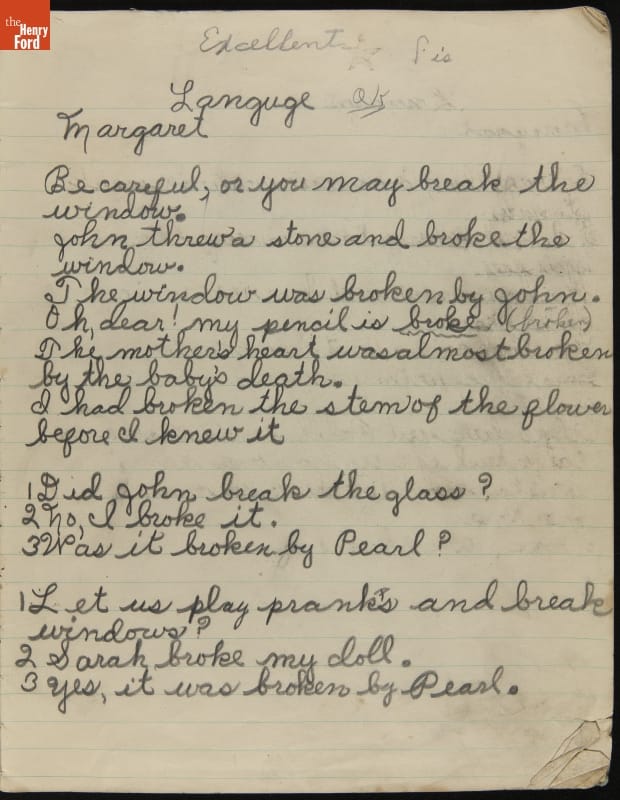 the
Henry
Ford
Excellent
is
Languge OK
Margaret
Be careful, or you may break the
window.
John threw a stone and broke the
window.
The window was broken by John.
Oh, dear! my pencil is broke (broken)
The, mother's heart was almost broken
by the baby's death.
I had broken the stem of the flower
before I knew it
1 Did John break the glass?
2 No, I broke it.
3 Was it broken by Pearl?
1 Let us play pranks and break
windows?
2 Sarah broke my doll.
3 Yes, it was broken by Pearl.